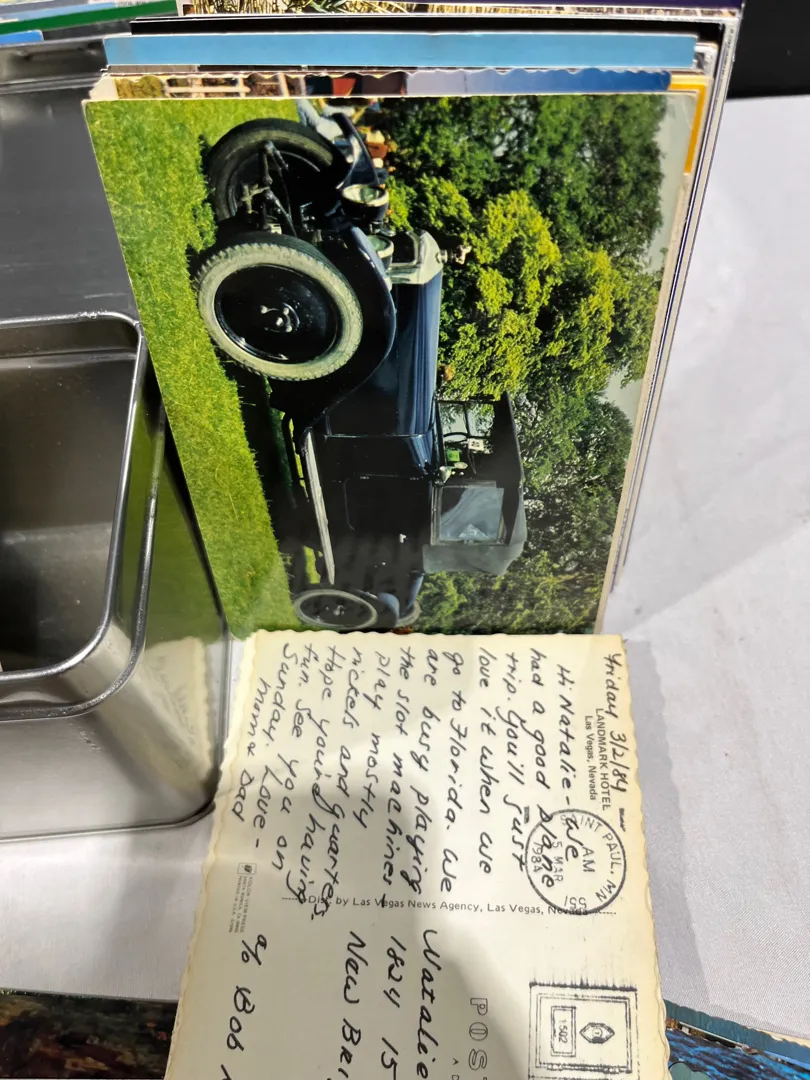 Friday 3/2/84
LANDMARK HOTEL
Las Vegas, Nevada
Hi Natalie - We
had a good plane
trip. You'll just
love it when we
go to Florida. We
are busy playing
the slot machines.
Play mostly
nickels and quarters.
Hope your having
fun. See you on
Sunday. Love -
Mom & Dad
INT PAUL, MN
AM
5 MAR
1984
Dist. by Las Vegas News Agency, Las Vegas, Nevada
1502
POS
Natalie
1824 15
New Bri
% Bob